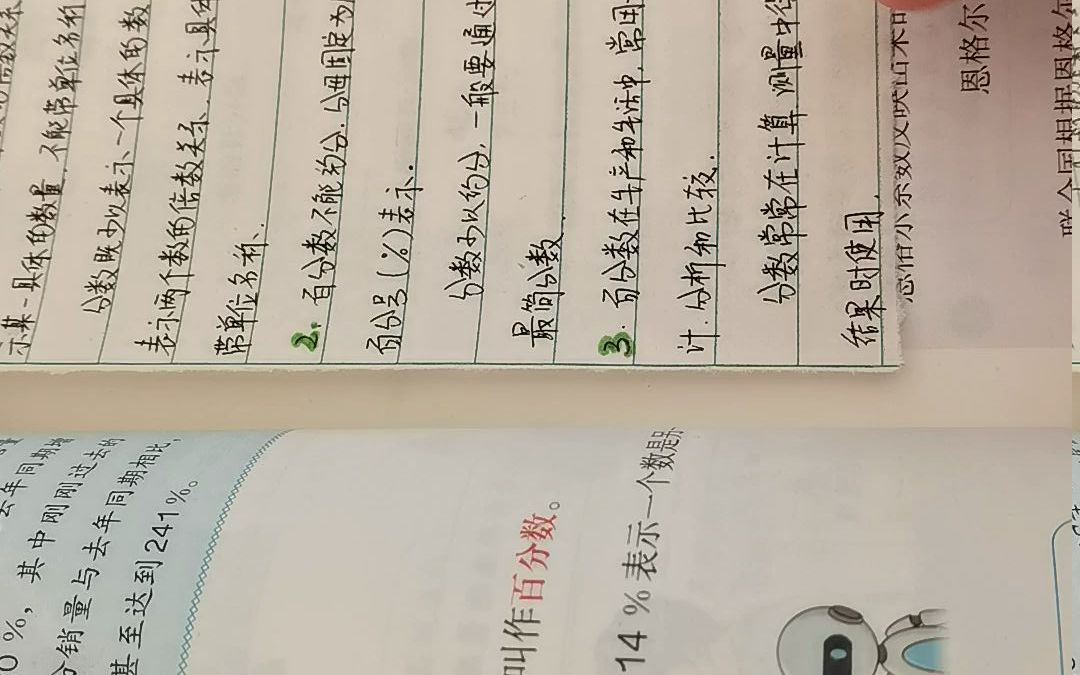 示某一具体的数量,不能带单位名称
分数既可以表示一个具体的数
表示两个数的倍数关系,表示具体
带单位名称.
2. 百分数不能约分,分母固定为
百分号(%)表示.
分数可以约分,一般要通过
最简分数.
3. 百分数在生产和生活中,常用
计.分析和比较.
分数常常在计算、测量中得
结果时使用.
恩格尔
联合国根据恩格尔
去年同期增
0%,其中刚刚过去的
分销量与去年同期相比,
甚至达到241%。
叫作百分数。
14%表示一个数是另